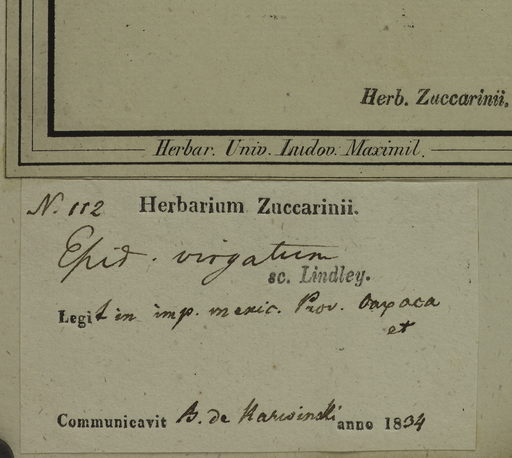 Herb. Zuccarinii.
Herbar. Univ. Ludov. Maximil.
N. 112 Herbarium Zuccarinii.
Epid. virgatum
sc. Lindley.
Legit in imp. mexic. Prov. Oaxaca
et
Communicavit B. de Karwinski anno 1834